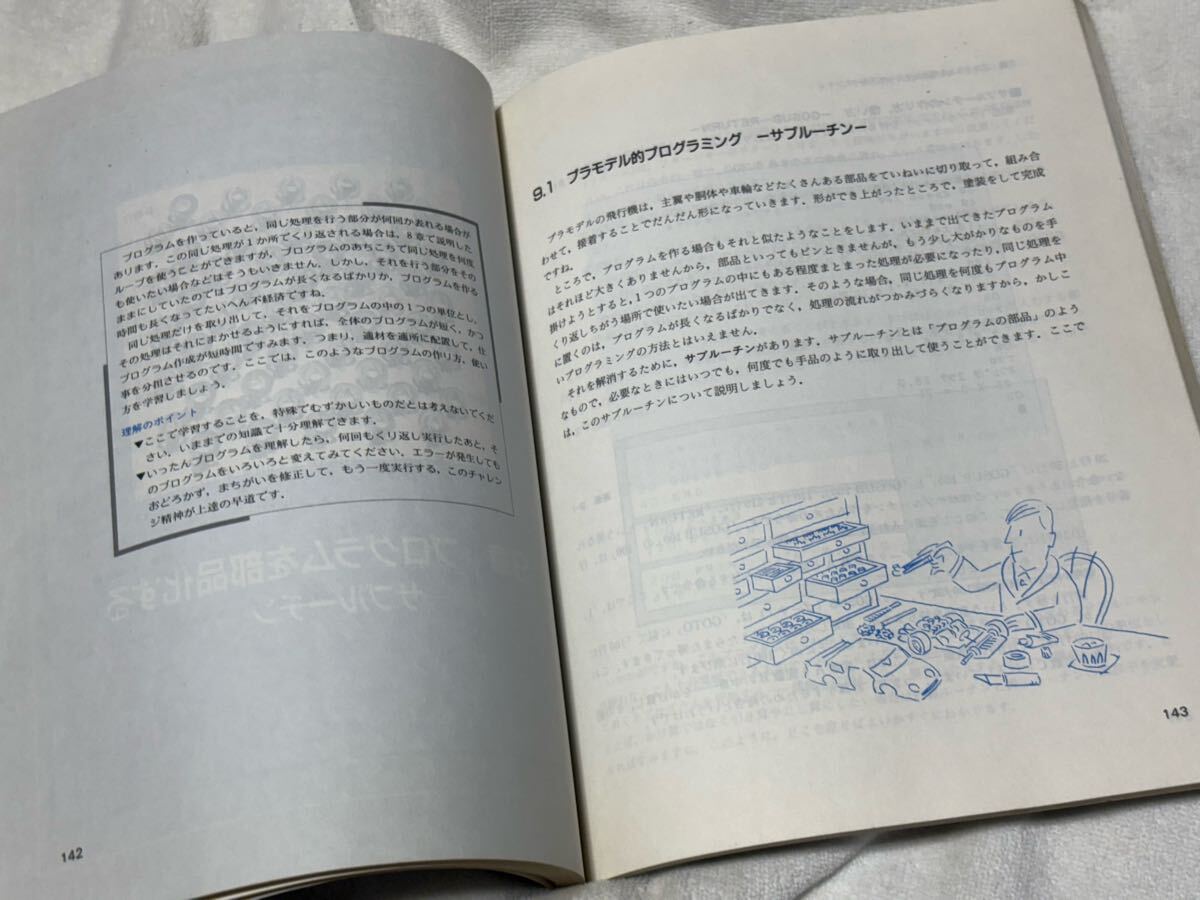 プログラムを作っていると，同じ処理を行う部分が何回か表れる場合が
あります．この同じ処理が1か所でくり返される場合は，8章で説明した
ループを使うことができますが，プログラムのあちこちで同じ処理を何度
も使いたい場合などはそうもいきません．しかし，それを行う部分をその
ままにしていたのではプログラムが長くなるばかりか，プログラムを作る
時間も長くなってたいへん不経済ですね．
同じ処理だけを取り出して，それをプログラムの中の1つの単位とし，
その処理はそれにまかせるようにすれば，全体のプログラムが短く，かつ
プログラム作成が短時間ですみます．つまり，適材を適所に配置して，仕
事を分担させるのです．ここでは，このようなプログラムの作り方，使い
方を学習しましょう．
理解のポイント
▼ここで学習することを，特殊でむずかしいものだとは考えないでくだ
さい，いままでの知識で十分理解できます．
▼いったんプログラムを理解したら，何回もくり返し実行したあと，そ
のプログラムをいろいろと変えてみてください．エラーが発生しても
おどろかず，まちがいを修正して，もう一度実行する，このチャレン
ジ精神が上達の早道です．
プログラムを部品化する
サブルーチン
142
9.1 プラモデル的プログラミング －サブルーチン－
プラモデルの飛行機は，主翼や胴体や車輪などたくさんある部品をていねいに切り取って，組み合
わせて，接着することでだんだん形になっていきます．形ができ上がったところで，塗装をして完成
ですね．
ところで，プログラムを作る場合もそれと似たようなことをします．いままで出てきたプログラム
はそれほど大きくありませんから，部品といってもピンときませんが，もう少し大がかりなものを手
掛けようとすると，1つのプログラムの中にもある程度まとまった処理が必要になったり，同じ処理を
くり返しちがう場所で使いたい場合が出てきます．そのような場合，同じ処理を何度もプログラム中
に置くのは，プログラムが長くなるばかりでなく，処理の流れがつかみづらくなりますから，かしこ
いプログラミングの方法とはいえません．
それを解消するために，サブルーチンがあります．サブルーチンとは「プログラムの部品」のよう
なもので，必要なときにはいつでも，何度でも手品のように取り出して使うことができます．ここで
は，このサブルーチンについて説明しましょう．
143